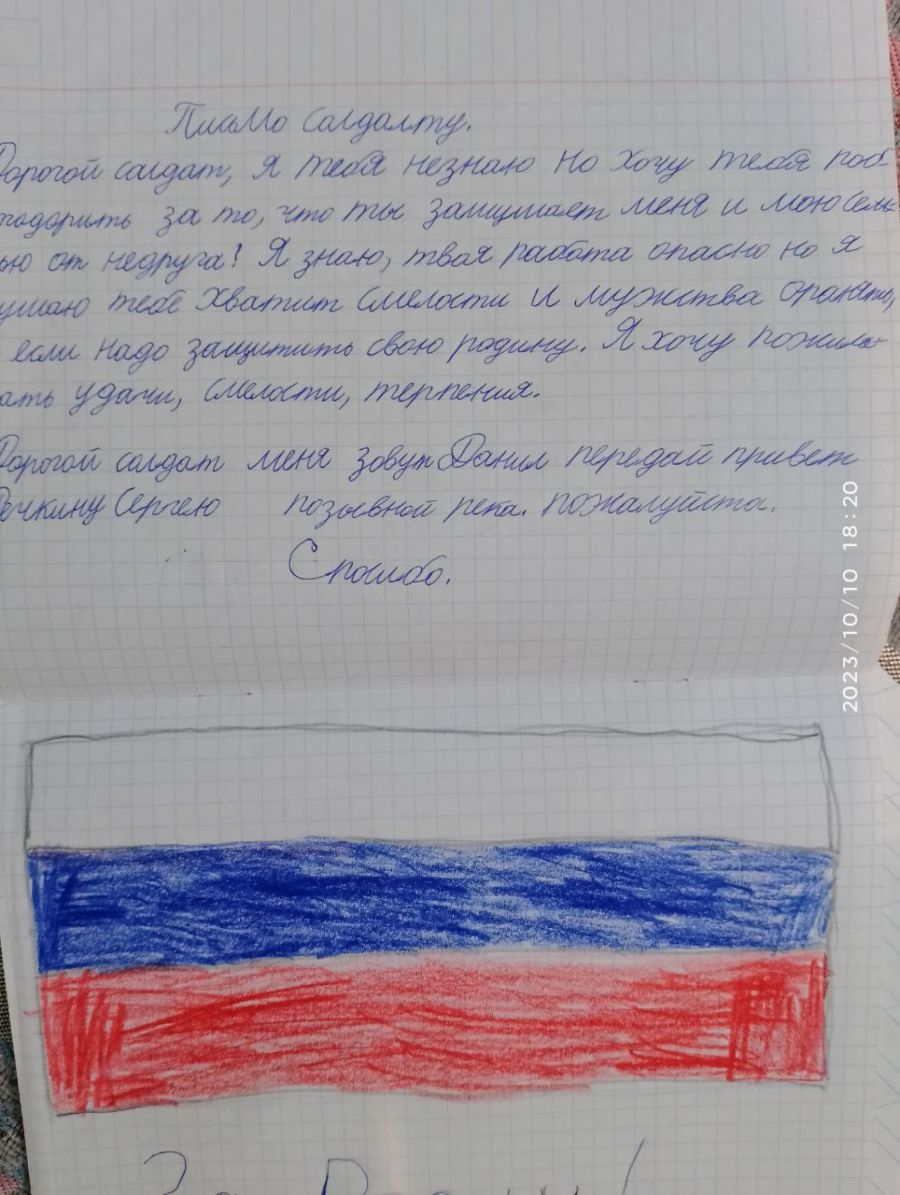 ПисьМо солдалту.
Дорогой солдат, я тебя незнаю но хочу тебя поб
годорить за то, что ты защищает меня и мою сем
ью от недруга! Я знаю, твоя работа опасно но я
думаю тебе хватит смелости и мужства
если надо защитить свою родину. Я хочу пожила
ать удачи, смелости, терпения.
Дорогой солдат меня зовут Данил передай привет
Речкину Сергею позывной репа. пожалуйста.
Спосибо.
2023/10/10 18:20
За